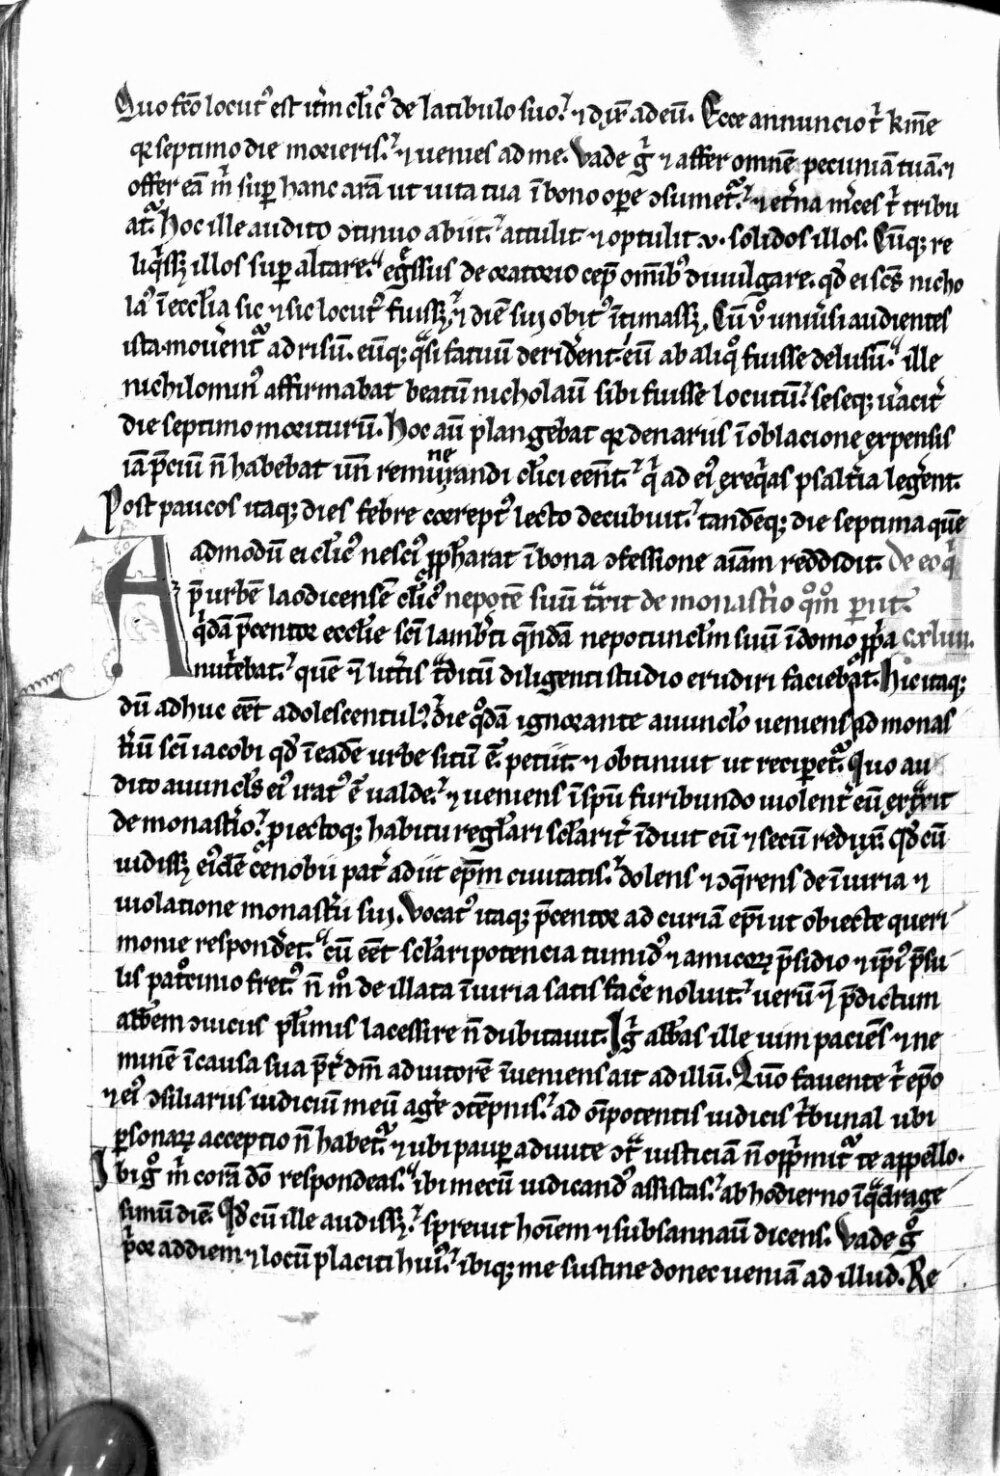 Quo fc̄o locut᷒ est itm̄ cl̄ic᷒ de latibulo suo. ⁊ dix̄ ad eū. Ecce annuncio t̄ kīne
qꝛ septimo die morieris. ⁊ uenies ad me. Vade g̊ ⁊ affer omnē pecuniā tuā. ⁊
offer eā m̄ sup̱ hanc arā ut uita tua ī bono oꝑe ↄsumet᷑. ⁊ et̄na m̄ces t̄ tribu
at᷑. Hoc ille audito ↄtinuo abiit. attulit ⁊ optulit .v. solidos illos. Cūqꝫ re
liq̄ssꝫ illos suꝑ altare. eg̊ssus de oratorio cep̄ om̄ibꝰ diuulgare. qd̄ ei sc̄s nicho
laꝰ ī eccl̄ia sic ⁊ sic locutꝰ fuissꝫ. ⁊ diē sui obitꝰ ītimassꝫ. Cū v̊ uniūsi audientes
ista mouēnt᷑ ad risū. eūqꝫ qͣsi fatuū deridēnt. eū ab aliqͦ fuisse delusū. ille
nichilominꝰ affirmabat beatū nicholaū sibi fuisse locutū. seseqꝫ ūacit̄
die septimo moriturū. Hoc aū plangebat qꝛ denariis ī oblacione expensis
iā p̄ciū n̄ habebat un̄ remunerandi cl̄ici eēnt. qͥ ad eiꝰ exeqͥas psalt̄ia leḡent.
Post paucos itaqꝫ dies febre correptꝰ lecto decubuit. tandēqꝫ die septima quē
admodū ei cl̄icꝰ nesciꝰ ꝓph̄arat ī bona ↄfessione aīam reddidit. de eo qͥ
p̄ urbē laodicensē cl̄icꝰ nepotē suū t̄xit de monast̄io qͦmͦ periit.
qͥdā p̄centor eccl̄ie sc̄i lamb̄ti quendā nepotuncl̄m suū ī domo ꝓp̄a cxliiii.
nut̄ebat. quē ⁊ lītis t̄ditū diligenti studio erudiri faciebat. Hic itaqꝫ
dū adhuc eēt adolescentulꝰ. die qͦdā ignorante auuncl̄o ueniens ad monas
t̄iū sc̄i iacobi qd̄ ī eadē urbe sitū ē. petiit. ⁊ obtinuit ut reciꝑet᷑. Quo au
dito auuncl̄s eiꝰ iratꝰ ē ualde. ⁊ ueniens ī sp̄u furibundo uiolent̄ eū ext̄xit
de monast̄io. ꝓiectoqꝫ habitu regl̄ari scl̄arit̄ īduit eū ⁊ secū redux̄. Qd̄ cū
uidissꝫ eiꝰdē cenobii pat̄ adiit ep̄m ciuitatis. dolens ⁊ ↄq̄rens de iīuria ⁊
uiolatione monast̄ii sui. Vocatꝰ itaqꝫ p̄centor ad curiā ep̄i ut obiecte queri
monie respondēt. cū eēt scl̄ari potencia tumidꝰ ⁊ amicorꝝ p̄sidio ⁊ ip̄iꝰ p̄su
lis pat̊cinio fretꝰ. n̄ mͦ de illata iniuria satisfac̄e noluit. uerū ⁊ p̄dictum
abb̄em ↄuiciis pl̄imis lacessire n̄ dubitauit. Ig̊ abb̄as ille uim paciēs ⁊ ne
minē ī causa sua p̄t̄ dm̄ adiutorē īueniens ait ad illū. Quō fauente t̄ ep̄o
⁊ eiꝰ ↄsiliariis iudiciū meū aḡe ↄtēpnis. ad oīpotentis iudicis t̄bunal ubi
ꝑsonarꝝ acceptio n̄ habet᷑. ⁊ ubi pauꝑ adiute ↄt̄ iusticiā n̄ opp̄mit᷑ te appello.
Ibi g̊ m̄ corā dō respondeas. ibi mecū iudicandꝰ assistas. ab hodierno ī qͣdrage
simū diē. Qd̄ cū ille audissꝫ. spreuit hoīem ⁊ subsannauit dicens. Vade g̊
p̄or ad diem ⁊ locū placiti huiꝰ. ibiqꝫ me sustine donec ueniā ad illud. Re